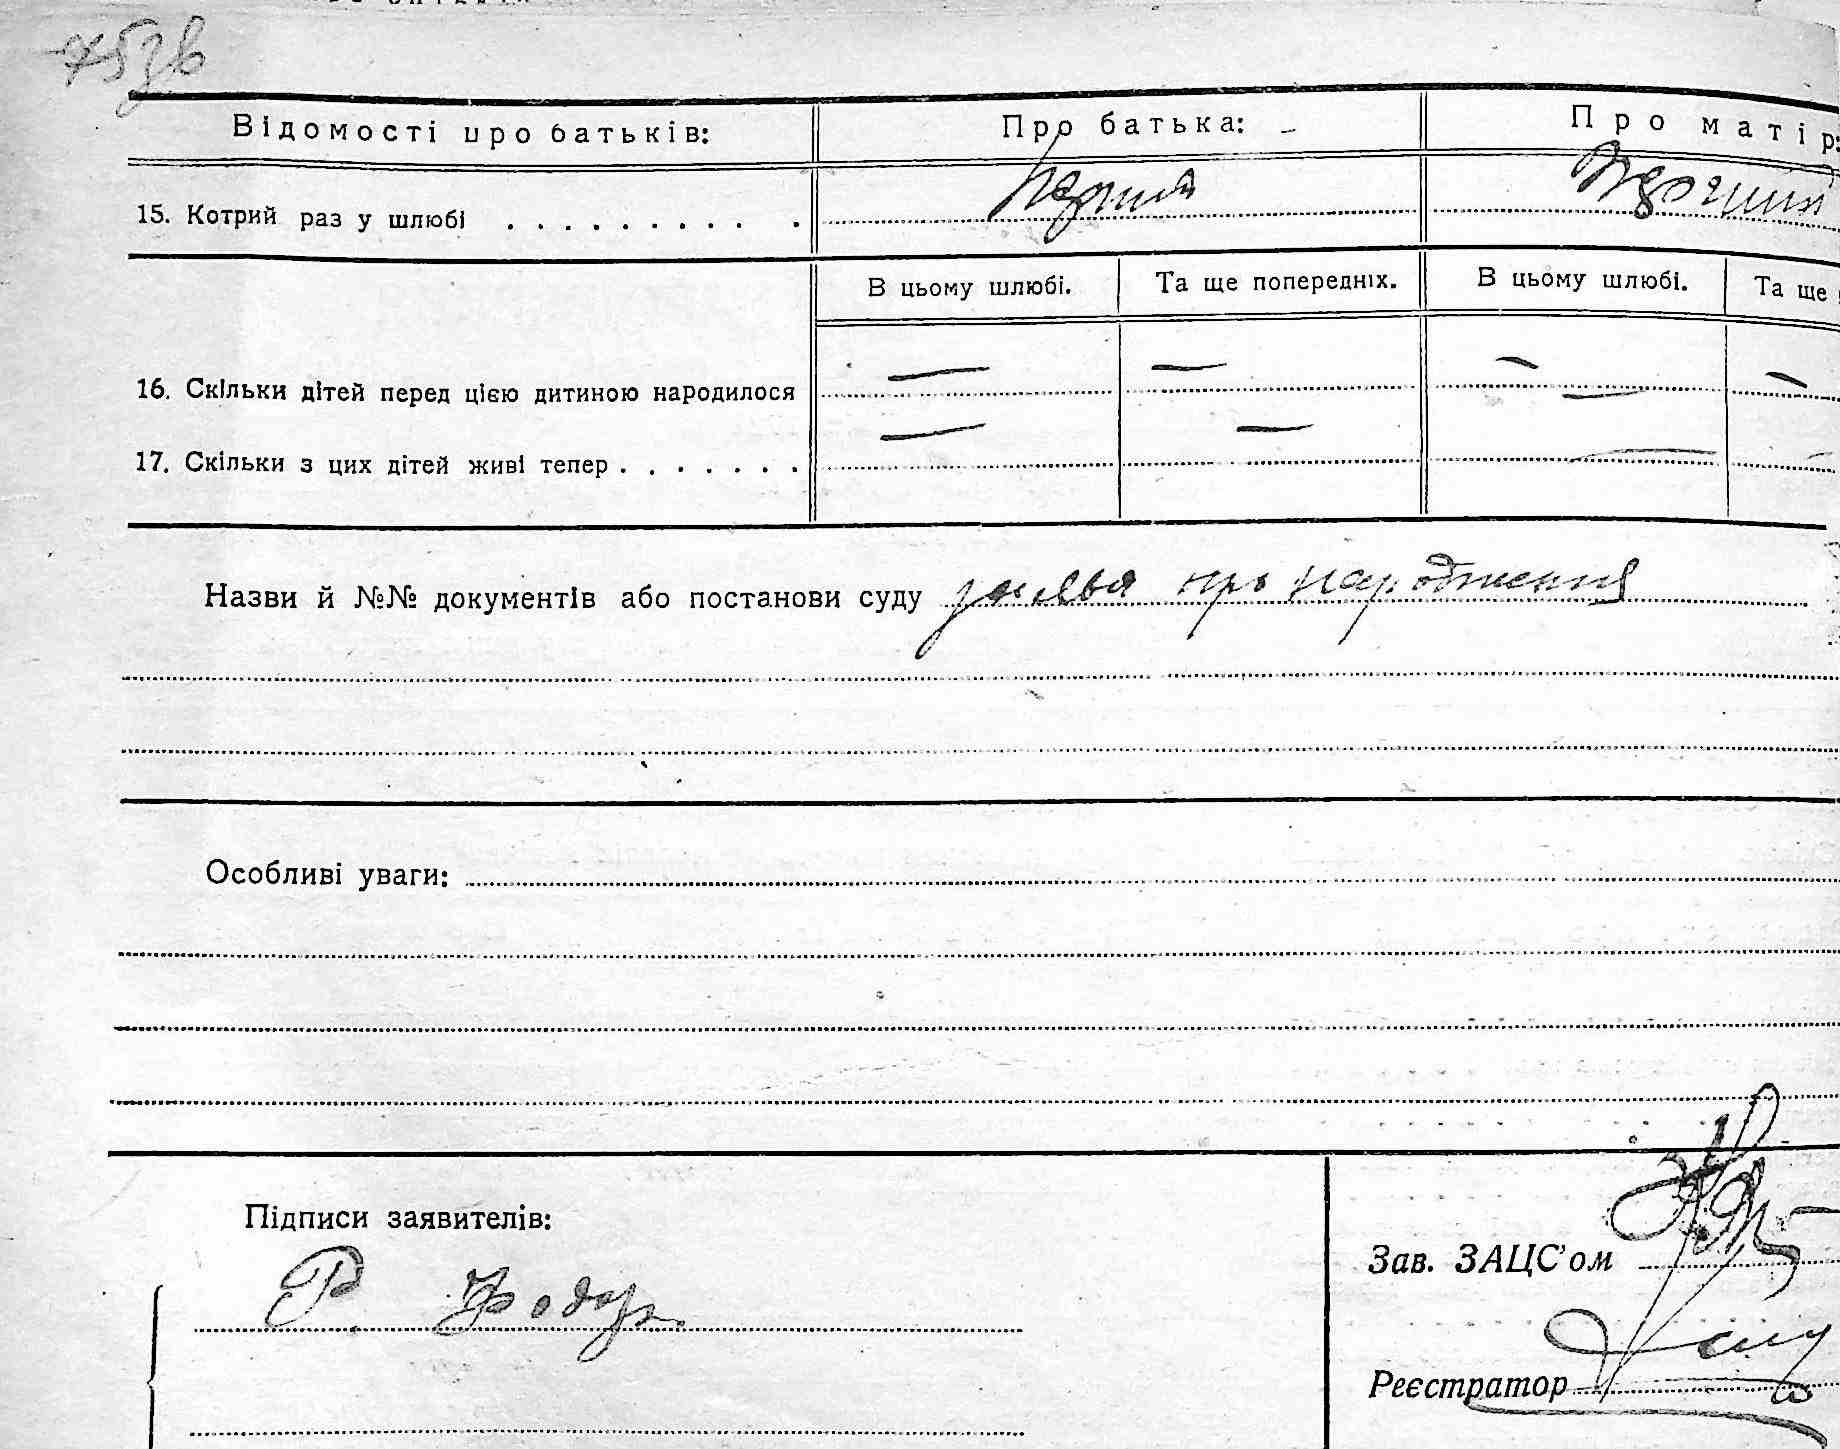 Відомості про батьків: Про батька: Про матір:
15. Котрий раз у шлюбі . . . . . . . . . . перший
В цьому шлюбі. Та ще попередніх. В цьому шлюбі. Та ще
16. Скільки дітей перед цією дитиною народилося — — — —
17. Скільки з цих дітей живі тепер . . . . . . . — — — —
Назви й №№ документів або постанови суду заява про народження
Особливі уваги:
Підписи заявителів:
Зав. ЗАЦС'ом
Р.
Реєстратор